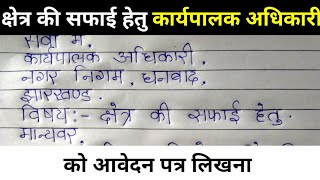 क्षेत्र की सफाई हेतु कार्यपालक अधिकारी
सेवा में,
कार्यपालक अधिकारी,
नगर निगम, धनबाद,
झारखण्ड.
विषय:- क्षेत्र की सफाई हेतु.
मान्यवर,
को आवेदन पत्र लिखना